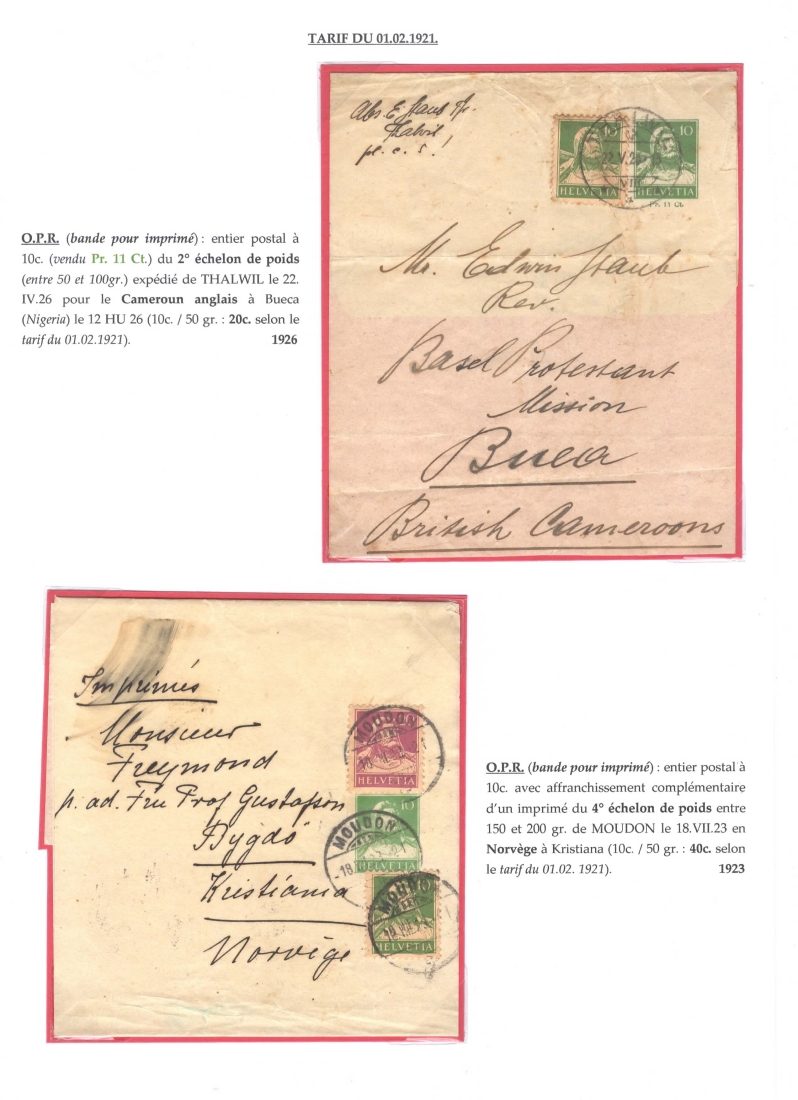 TARIF DU 01.02.1921.
Abs E. Staub
Thalwil
pl. c. s!
10 10
22.V.26
VIII
HELVETIA HELVETIA
PR. 11 Ct.
Mr. Edwin Staub
Rev.
Basel Protestant
Mission
Buea
British Cameroons
O.P.R. (bande pour imprimé) : entier postal à
10c. (vendu Pr. 11 Ct.) du 2° échelon de poids
(entre 50 et 100gr.) expédié de THALWIL le 22.
IV.26 pour le Cameroun anglais à Bueca
(Nigeria) le 12 HU 26 (10c. / 50 gr. : 20c. selon le
tarif du 01.02.1921). 1926
Imprimés
Monsieur
Freymond
p. ad. Fru Prof Gustafson
Bygdö
Kristiania
Norvège
MOUDON
HELVETIA
10
MOUDON
-18
10
MOUDON
18.VII.23
HELVETIA
O.P.R. (bande pour imprimé) : entier postal à
10c. avec affranchissement complémentaire
d'un imprimé du 4° échelon de poids entre
150 et 200 gr. de MOUDON le 18.VII.23 en
Norvège à Kristiana (10c. / 50 gr. : 40c. selon
le tarif du 01.02. 1921). 1923